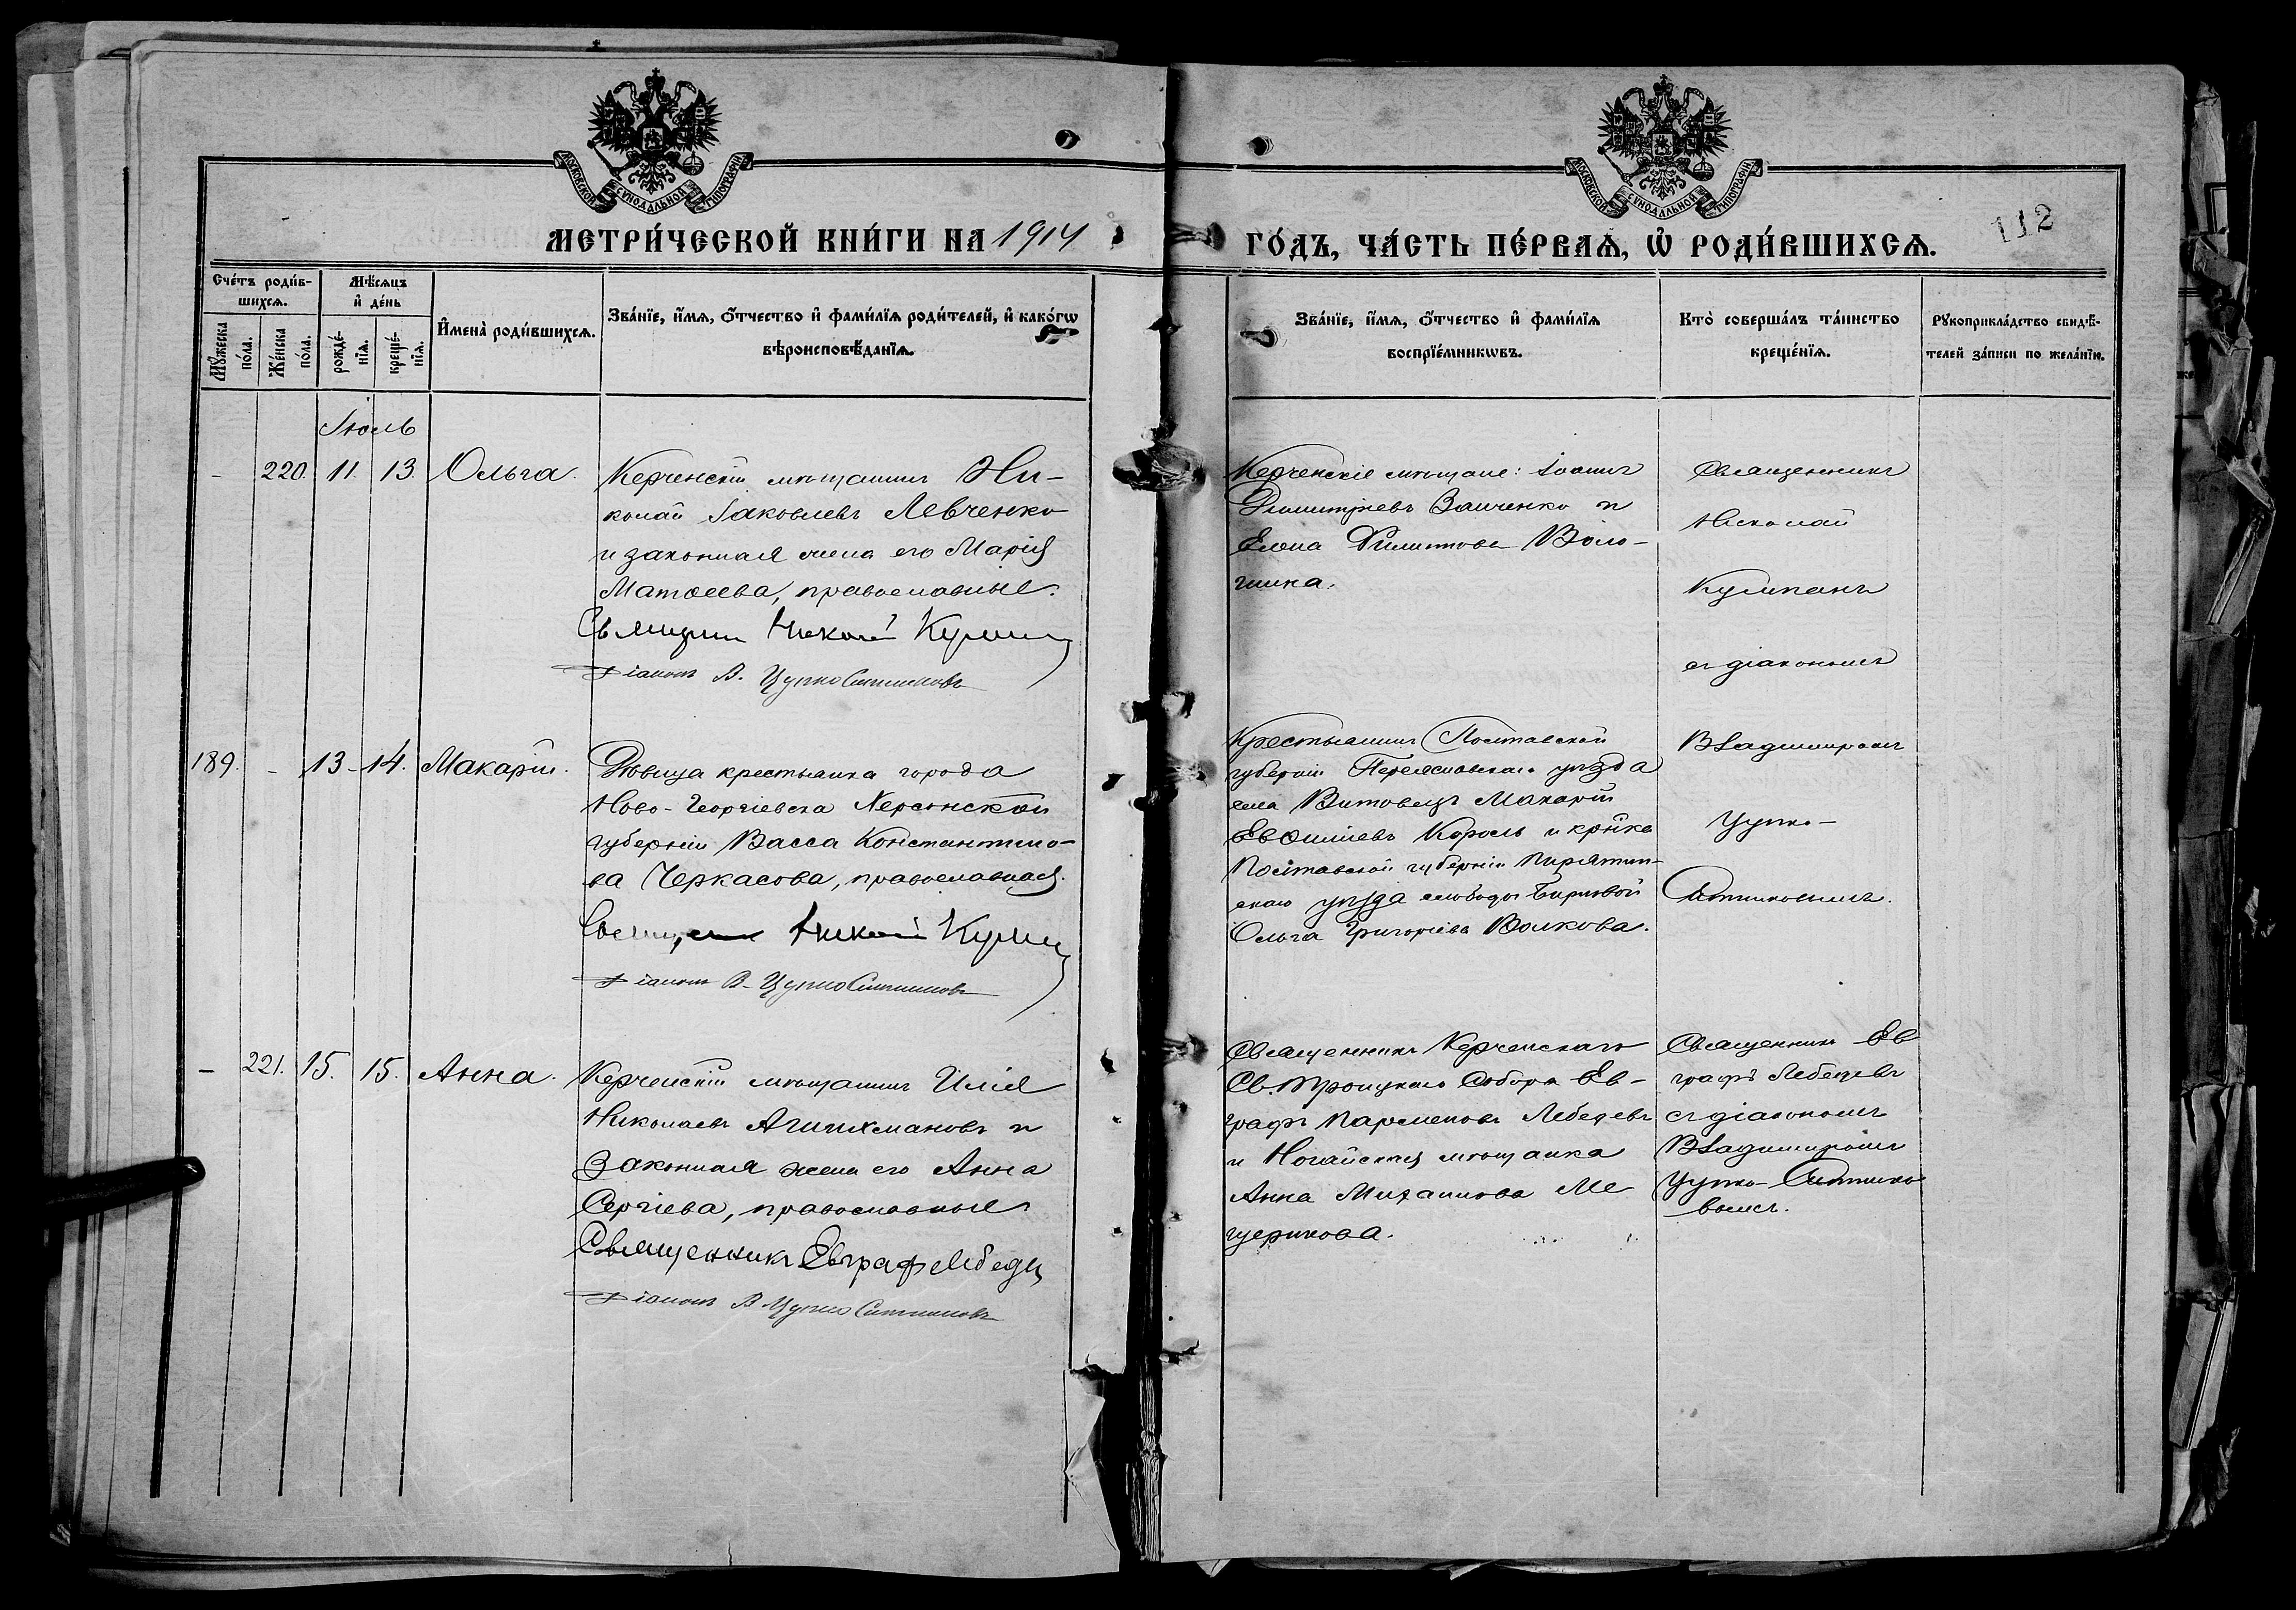 МОСКОВСКОЙ СѴНОДАЛЬНОЙ ТИПОГРАФІИ
МОСКОВСКОЙ СѴНОДАЛЬНОЙ ТИПОГРАФІИ
МЕТРИ́ЧЕСКОЙ КНИ́ГИ НА 1914
ГО́ДЪ, ЧА́СТЬ ПЕ́РВАѦ, Ѡ҆ РОДИ́ВШИХСѦ.
112
Сче́тъ роди́в-
шихсѧ.
Мѣ́сѧцъ
и҆ де́нь
Мꙋ́жеска
по́ла.
Же́нска
по́ла.
рожде́-
нїѧ.
креще́-
нїѧ.
И҆мена̀ роди́вшихсѧ.
Зва́нїе, и҆́мѧ, ѻ҆́тчество и҆ фами́лїѧ роди́телей, и҆ како́гѡ
вѣроисповѣ́данїѧ.
Зва́нїе, и҆́мѧ, ѻ҆́тчество и҆ фами́лїѧ
воспрїе́мникѡвъ.
Кто̀ соверша́лъ та́инство
креще́нїѧ.
Рꙋкоприкла́дство свидѣ́-
телей за́писи по жела́нїю.
Іюль
- 220. 11. 13. Ольга.
Керченскій мѣщанинъ Ни-
колай Іаковлевъ Левченко
и законная жена его Марія
Матѳеева, православные.
Священникъ Николай
Діаконъ В. Цупко Ситниковъ
Керченскіе мѣщане: Іоаннъ
Димитріевъ Ванченко и
Елена Филиппова Воло-
шина.
Священникъ
Николай
Кулпанъ
съ діакономъ
Владиміромъ
Цупко-
Ситниковымъ.
189. - 13 - 14. Макарій.
Дѣвица крестьянка города
Ново-Георгіевска Херсонской
губерніи Васса Константино-
ва Черкасова, православная.
Священникъ Николай
Діаконъ В. Цупко Ситниковъ
Крестьянинъ Полтавской
губерніи Переяславскаго уѣзда
села Витовецъ Макарій
Евѳиміевъ Король и кр-нка
Полтавской губерніи Пирятин-
скаго уѣзда слободы
Ольга Григоріева Волкова.
- 221. 15. 15. Анна.
Керченскій мѣщанинъ Илія
Николаевъ и
законная жена его Анна
Сергіева, православные
Священникъ Евграфъ Лебедевъ
Діаконъ В. Цупко Ситниковъ
Священникъ Керченскаго
Св. Троицкаго Собора Ев-
графъ Парменовъ Лебедевъ
и Ногайская мѣщанка
Анна Михаилова Ме
щерикова.
Священникъ Ев
графъ Лебедевъ
съ діакономъ
Владиміромъ
Цупко-Ситнико
вымъ.